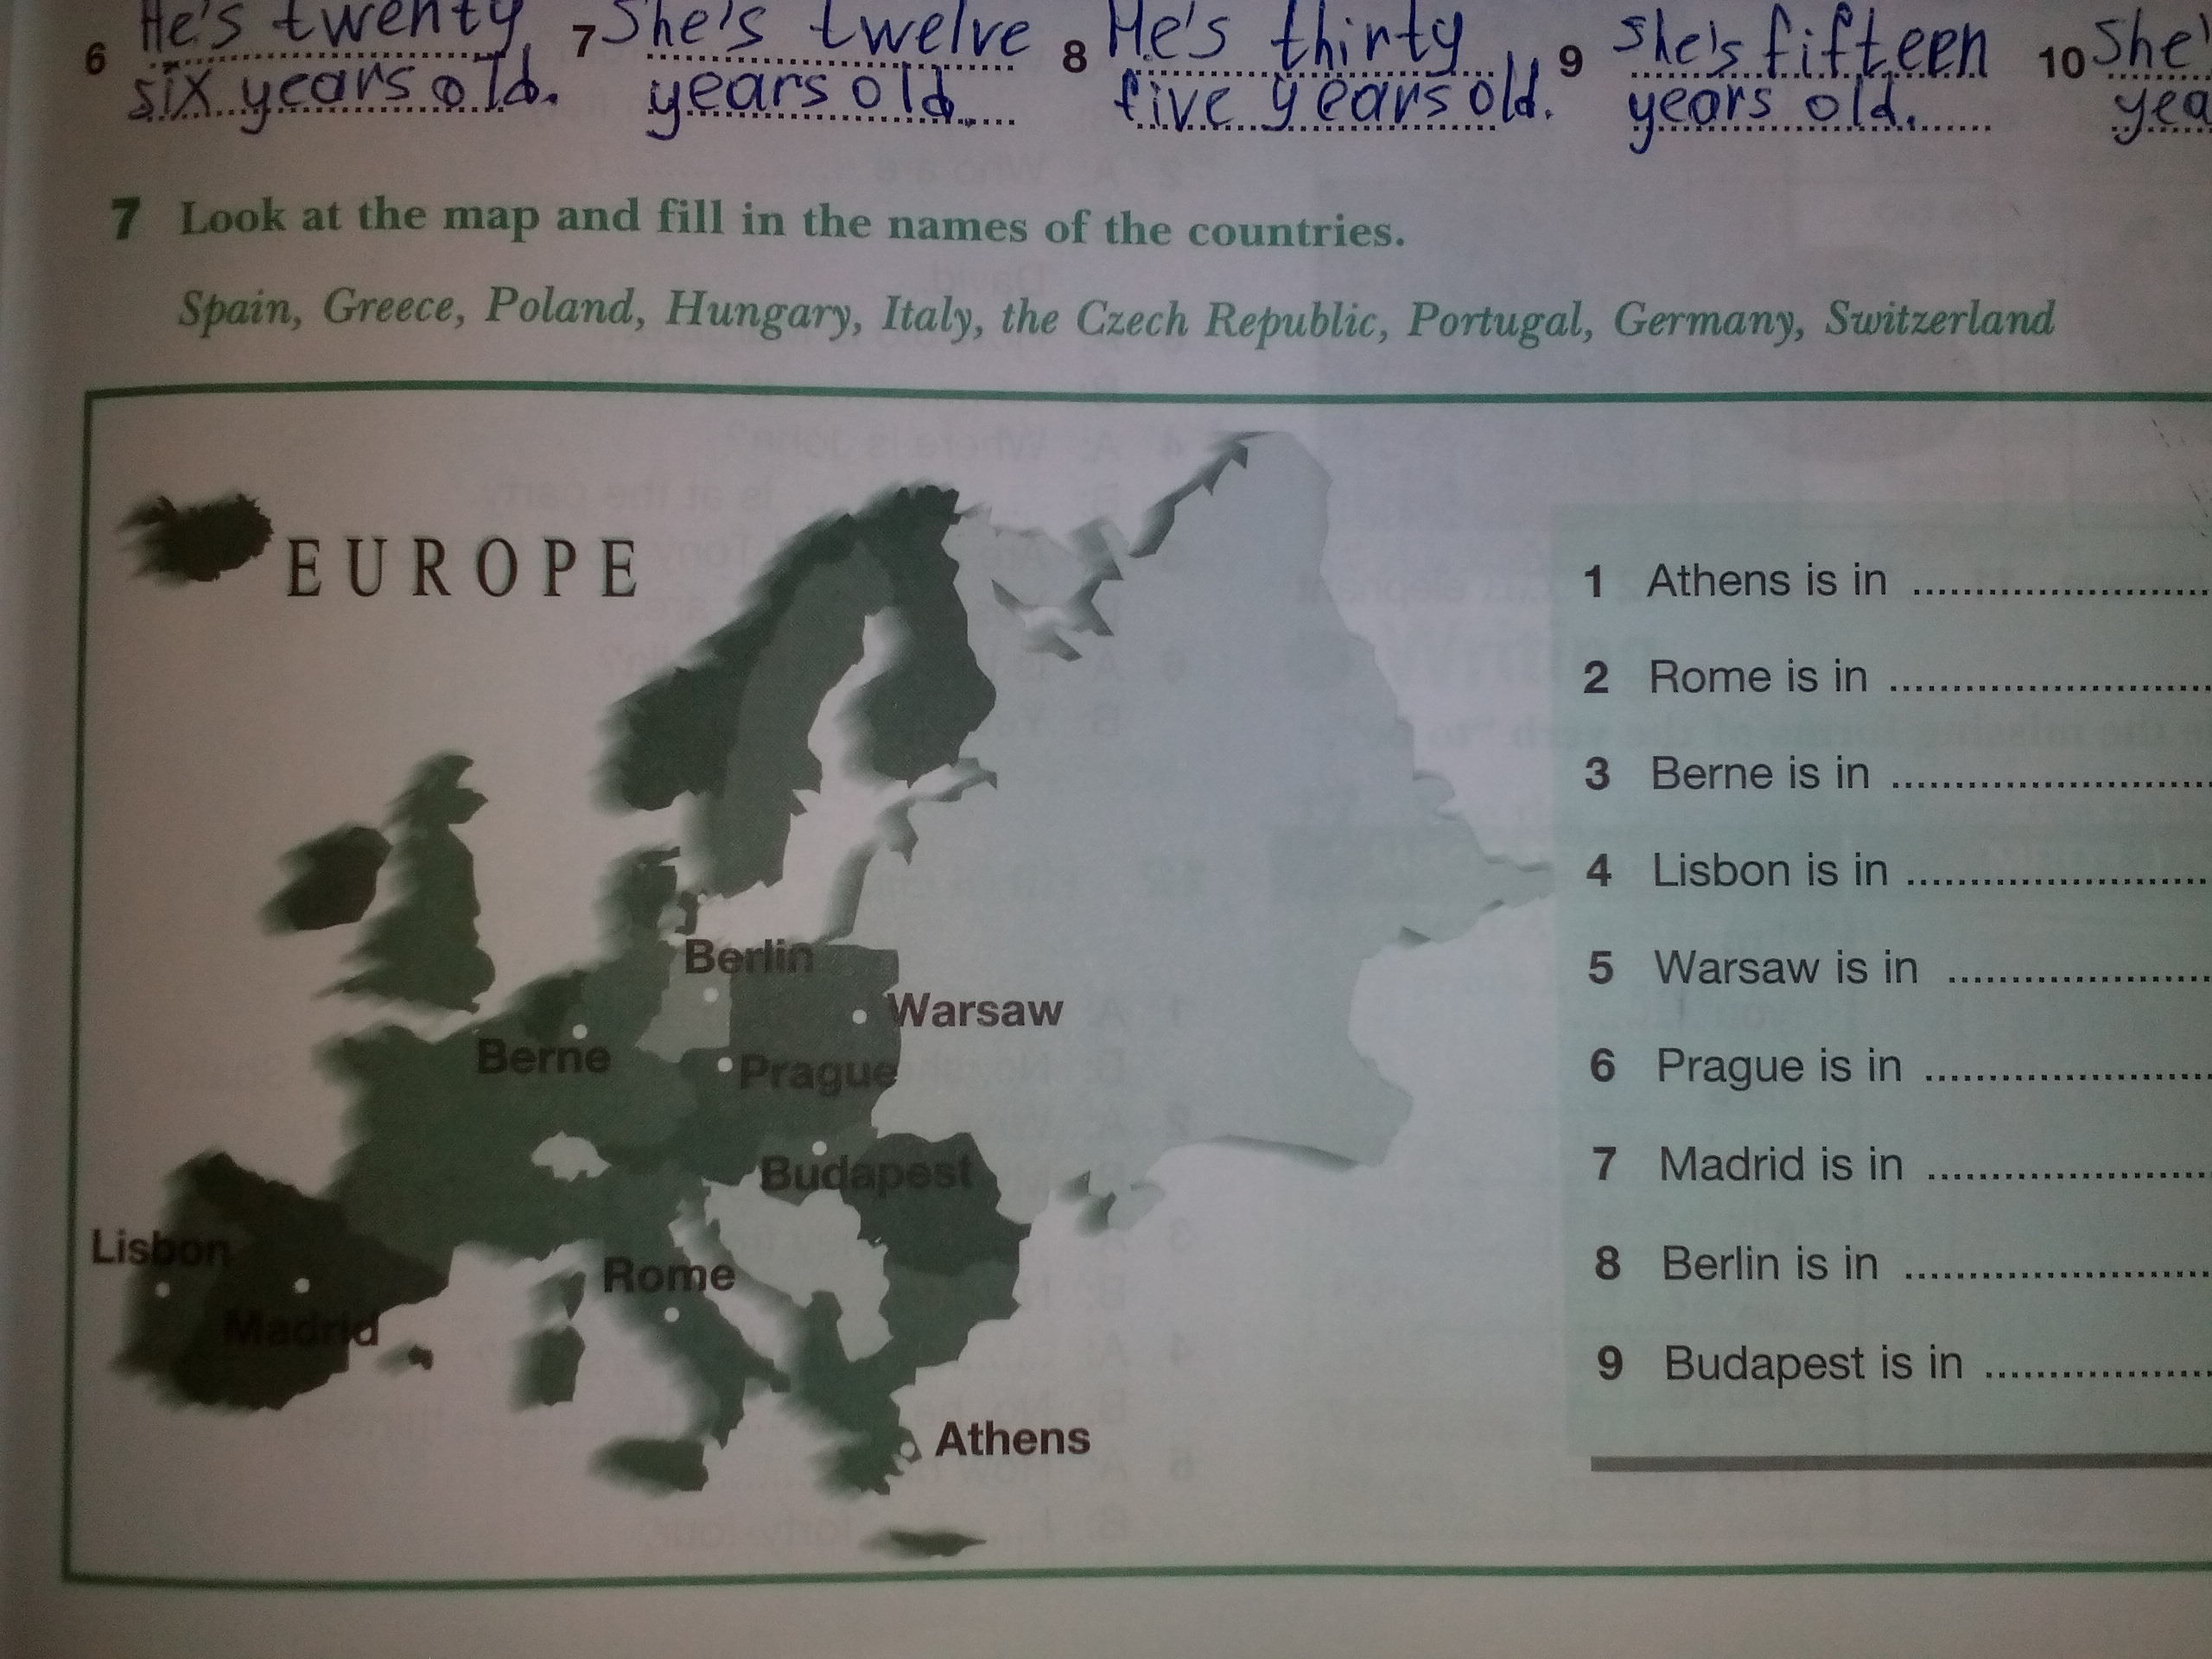 6 He's twenty 7 She's twelve 8 He's thirty 9 She's fifteen 10 She'
six years old. years old. five years old. years old. yea
7 Look at the map and fill in the names of the countries.
Spain, Greece, Poland, Hungary, Italy, the Czech Republic, Portugal, Germany, Switzerland
EUROPE
Berlin
Warsaw
Berne
Prague
Budapest
Lisbon
Rome
Madrid
Athens
1 Athens is in ........................
2 Rome is in ........................
3 Berne is in ........................
4 Lisbon is in ........................
5 Warsaw is in ........................
6 Prague is in ........................
7 Madrid is in ........................
8 Berlin is in ........................
9 Budapest is in ........................